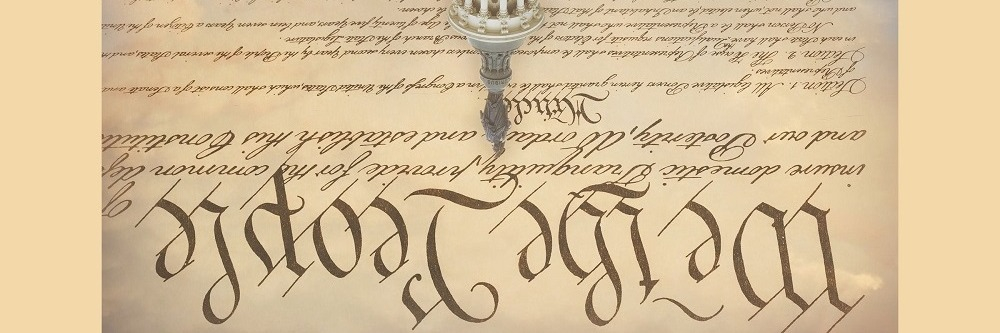 We the People
insure domestic Tranquility, provide for the common defe
and our Posterity, do ordai and establish this Constituti
Article
Section. 1. All legislative Powers herein granted in a Congress of the United States, which shall consist of a Senate and
of Representatives.
Section. 2. The House of Representatives shall be composed chosen every second Year by the People of the several States, and
in each State shall have the Qualifications requisite for Electors of the Branch of the State Legislature.
No Person shall be a Representative who shall not have to the Age of twenty five Years, and been seven Years a Citizen of the
and who shall not, when elected, be an Inhabitant of that he shall be chosen.